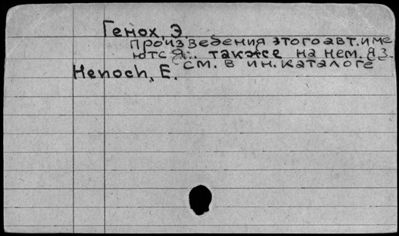 Генох, Э.
Произведения этого авт. име
ются я.. также на нем. яз.
см. в ин. каталоге
Henoch, E.